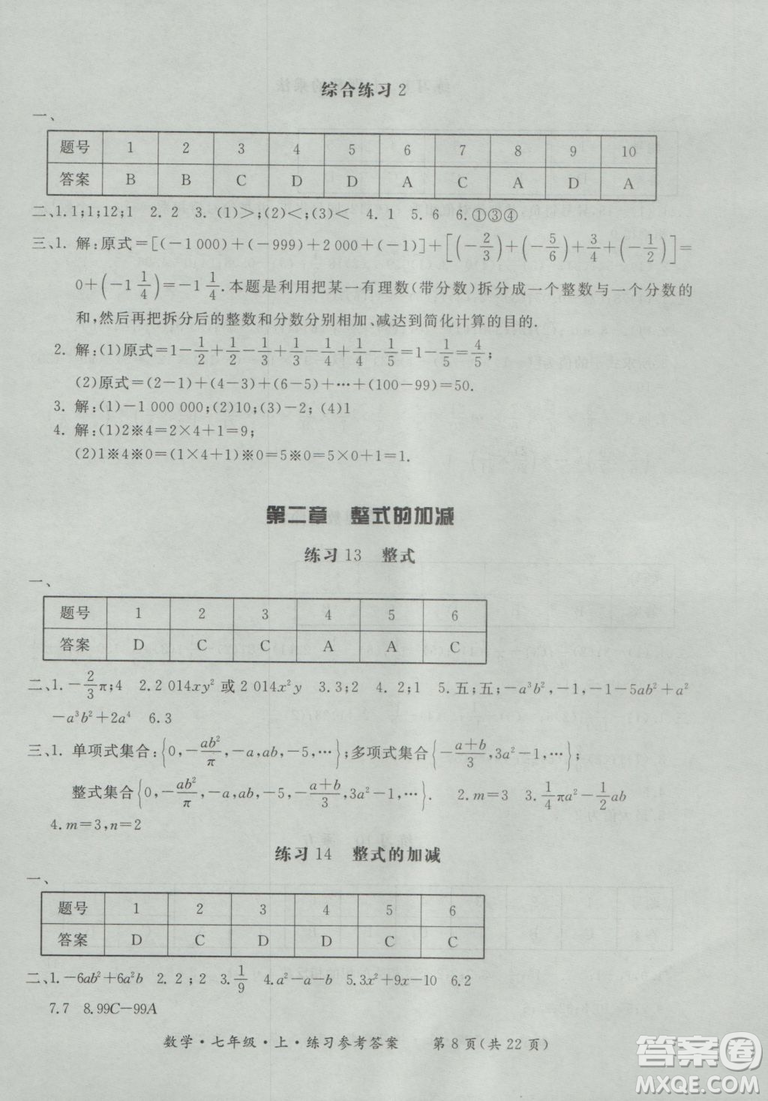 综合练习2
一、
题号 1 2 3 4 5 6 7 8 9 10
答案 B B C D D A C A D A
二、1.1;1;12;1 2.2 3.(1)>;(2)<;(3)< 4.1 5.6 6.①③④
三、1. 解:原式=[(-1 000)+(-999)+2 000+(-1)]+[(-2/3)+(-5/6)+3/4+(-1/2)]=
0+(-1 1/4)=-1 1/4.本题是利用把某一有理数(带分数)拆分成一个整数与一个分数的
和,然后再把拆分后的整数和分数分别相加、减达到简化计算的目的.
2. 解:(1)原式=1-1/2+1/2-1/3+1/3-1/4+1/4-1/5=1-1/5=4/5;
(2)原式=(2-1)+(4-3)+(6-5)+…+(100-99)=50.
3. 解:(1)-1 000 000;(2)10;(3)-2; (4)1
4. 解:(1)2※4=2×4+1=9;
(2)1※4※0=(1×4+1)※0=5×0+1=1.
第二章 整式的加减
练习13 整式
一、
题号 1 2 3 4 5 6
答案 D C C A A C
二、1.-2/3π;4 2.2 014xy² 或 2 014x²y 3.3;3 4.2;1 5.五;五;-a³b²,-1,-1-5ab²+a²
-a³b²+2a⁴ 6.3
三、1. 单项式集合:{0,-ab²/π,-a,ab,-5,…};多项式集合{-(a+b)/3,3a²-1,…};
整式集合{0,-ab²/π,-a,ab,-5,-(a+b)/3,3a²-1,…}. 2.m=3 3.1/4πa²-1/2ab
4.m=3,n=2
练习14 整式的加减
一、
题号 1 2 3 4 5 6
答案 D C D C D C
二、1.-6ab²+6a²b 2.2;2 3.1/9 4.a²-a;a²-a 5.3x²+9x-10 6.2
7.7 8.99C-99A
数学·七年级·上·练习参考答案 第8页(共22页)
答案圈
MXQE.COM